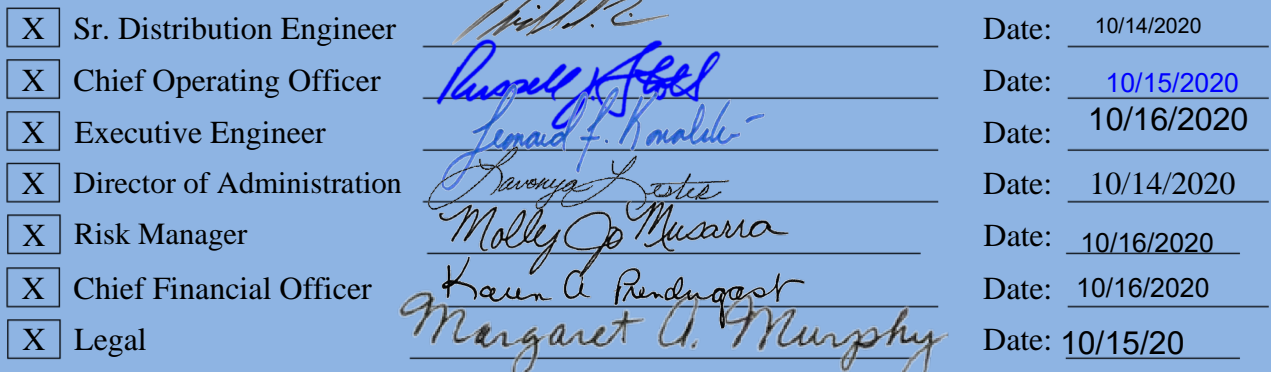 X Sr. Distribution Engineer Date: 10/14/2020
X Chief Operating Officer Russell J Stoll Date: 10/15/2020
X Executive Engineer Leonard F. Kowalski Date: 10/16/2020
X Director of Administration Lavonya Lester Date: 10/14/2020
X Risk Manager Molly Jo Musarra Date: 10/16/2020
X Chief Financial Officer Karen A Prendergast Date: 10/16/2020
X Legal Margaret A. Murphy Date: 10/15/20